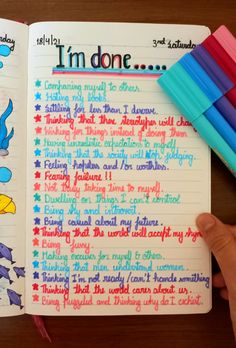 rday
18/4/21
3rd Saturday
I'm done.....
Comparing myself to others.
Hating my body.
Settling for less than I deserve.
Thinking that these stereotypes will change
Wishing for things instead of doing them
Having unrealistic expectations to myself.
Thinking that the society will stop judging.
Feeling hopeless and/or worthless.
Fearing failure!!
Not truly taking time to myself.
Dwelling on things I can't control
Being shy and introvert.
Being casual about my future.
Thinking that the world will accept my
Being fussy.
Making excuses for myself & others.
Thinking that men understand women.
Thinking I'm not ready/can't handle something
Thinking that the world cares about us.
Being and thinking why do I exist.